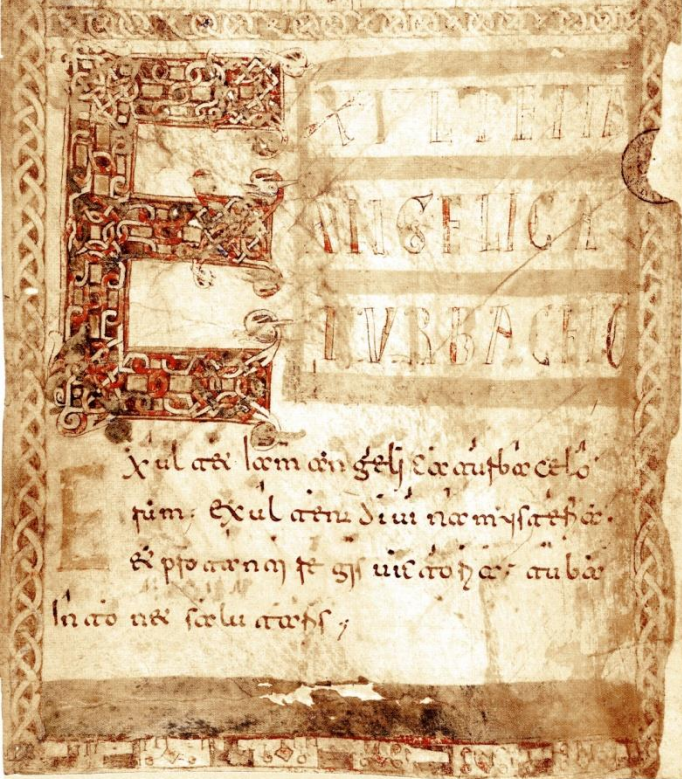 EXULTETIA
ANGELICA
TURBACELO
Exul tet Iam an geli ca turba celo
rum: Exul tent divi na mysteria.
et pro tanti re gis victoria. tuba
Into net salu taris;